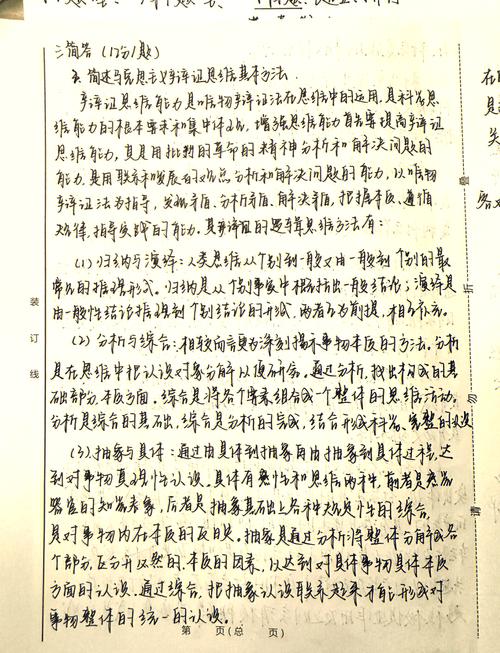 三简答(12分/题)
简述马克思主义辩证思维基本方法.
辩证思维能力是唯物辩证法在思维中的运用,是科学思
维能力的根本要求和集中体现,增强思维能力首要提高辩证
思维能力,真是用批判的革命的精神分析和解决问题的
能力,是用联系和发展的观点分析和解决问题的能力,以唯物
辩证法为指导,发现矛盾、分析矛盾、解决矛盾,把握本质、遵循
规律,指导实践的能力,其辩证的逻辑思维方法有:
(1)归纳与演绎:人类思维从个别到一般又由一般到个别的最
常见的推理形式.归纳是从个别事实中概括出一般结论;演绎是
由一般性结论推理到个别结论的形式,两者互为前提,相互补充.
(2)分析与综合:相较而言更为深刻揭示事物本质的方法.分析
是在思维中把认识对象分解以便研究.通过分析,找出构成的基
础部分、本质方面.综合是将各个要素组合成一个整体的思维活动.
分析是综合的基础,综合是分析的完成,结合形成科学、完整的认识
(3)抽象与具体:通过由具体到抽象再由抽象到具体过程,达
到对事物真理性认识.具体有感性和思维两种,前者是感觉
器官的知觉表象,后者是抽象基础上各种规定性的综合,
是对事物内在本质的反映.抽象是通过分析将整体分解成各
个部分,区分开必然的、本质的因素,以达到对具体事物具体本质
方面的认识.通过综合,把抽象认识联系起来才能形成对
事物整体的统一的认识.
第 页(总 页)
装
订
线